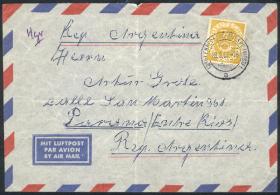 Rep. Argentina
Herrn
Artur Grote
Calle San Martin 365
Parana (Entre Rios)
Rep. Argentina
MIT LUFTPOST
PAR AVION
BY AIR MAIL